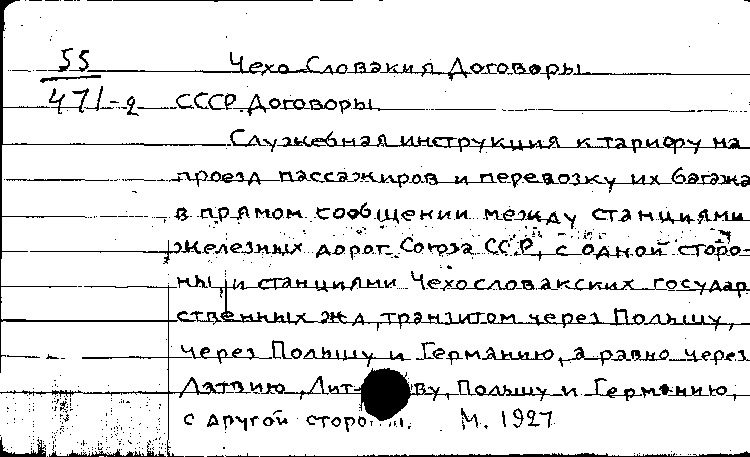 55 Чехо Словакия Договоры
471-2 СССР. Договоры.
Служебная инструкция к тарифу на
проезд пассажиров и перевозку их багажа
в прямом сообщении между станциями
железных дорог Союза ССР, с одной сторо-
ны, и станциями Чехословакских государ
ственных жд, транзитом через Польшу,
через Польшу и Германию, а равно через
Латвию, Польшу и Германию,
с другой М. 1927